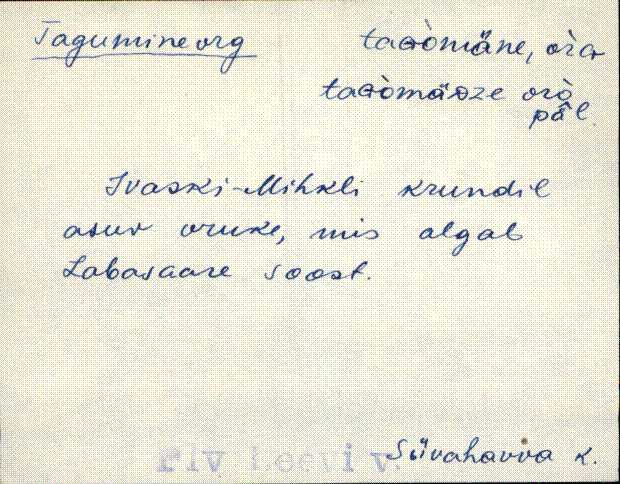 Tagumine org
taGòmäne, òrG
taGòmäDze orò
päl.
Ivaski-Mihkli krundil
asuv oruke, mis algab
Labasaare soost.
Räp Leevi v. Süvahavva k.